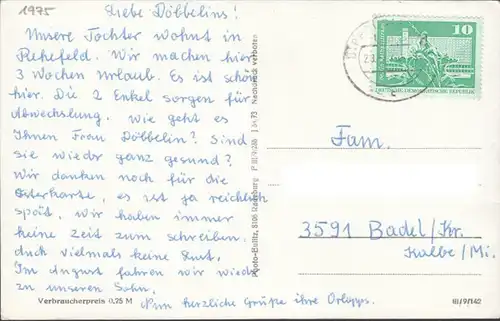 1975
Liebe Döbbelins!
Unsere Tochter wohnt in
Rehefeld. Wir machen hier
3 Wochen Urlaub. Es ist schön
hier. Die 2 Enkel sorgen für
Abwechslung. Wie geht es
Ihnen Frau Döbbelin? Sind
sie wieder ganz gesund?
Wir danken noch für die
Osterkarte, es ist ja reichlich
spät. Wir haben immer
keine Zeit zum schreiben,
auch vielmals keine Lust.
Im August fahren wir wieder
zu unseren Sohn.
Nun herzliche Grüße ihre
Verbraucherpreis 0,25 M
Photo-Bollitz, 8106 Radeburg
Nachdruck verboten
10
DEUTSCHE DEMOKRATISCHE REPUBLIK
Fam.
3591 Badel/Kr.
Kalbe/Mi.
III/9/142